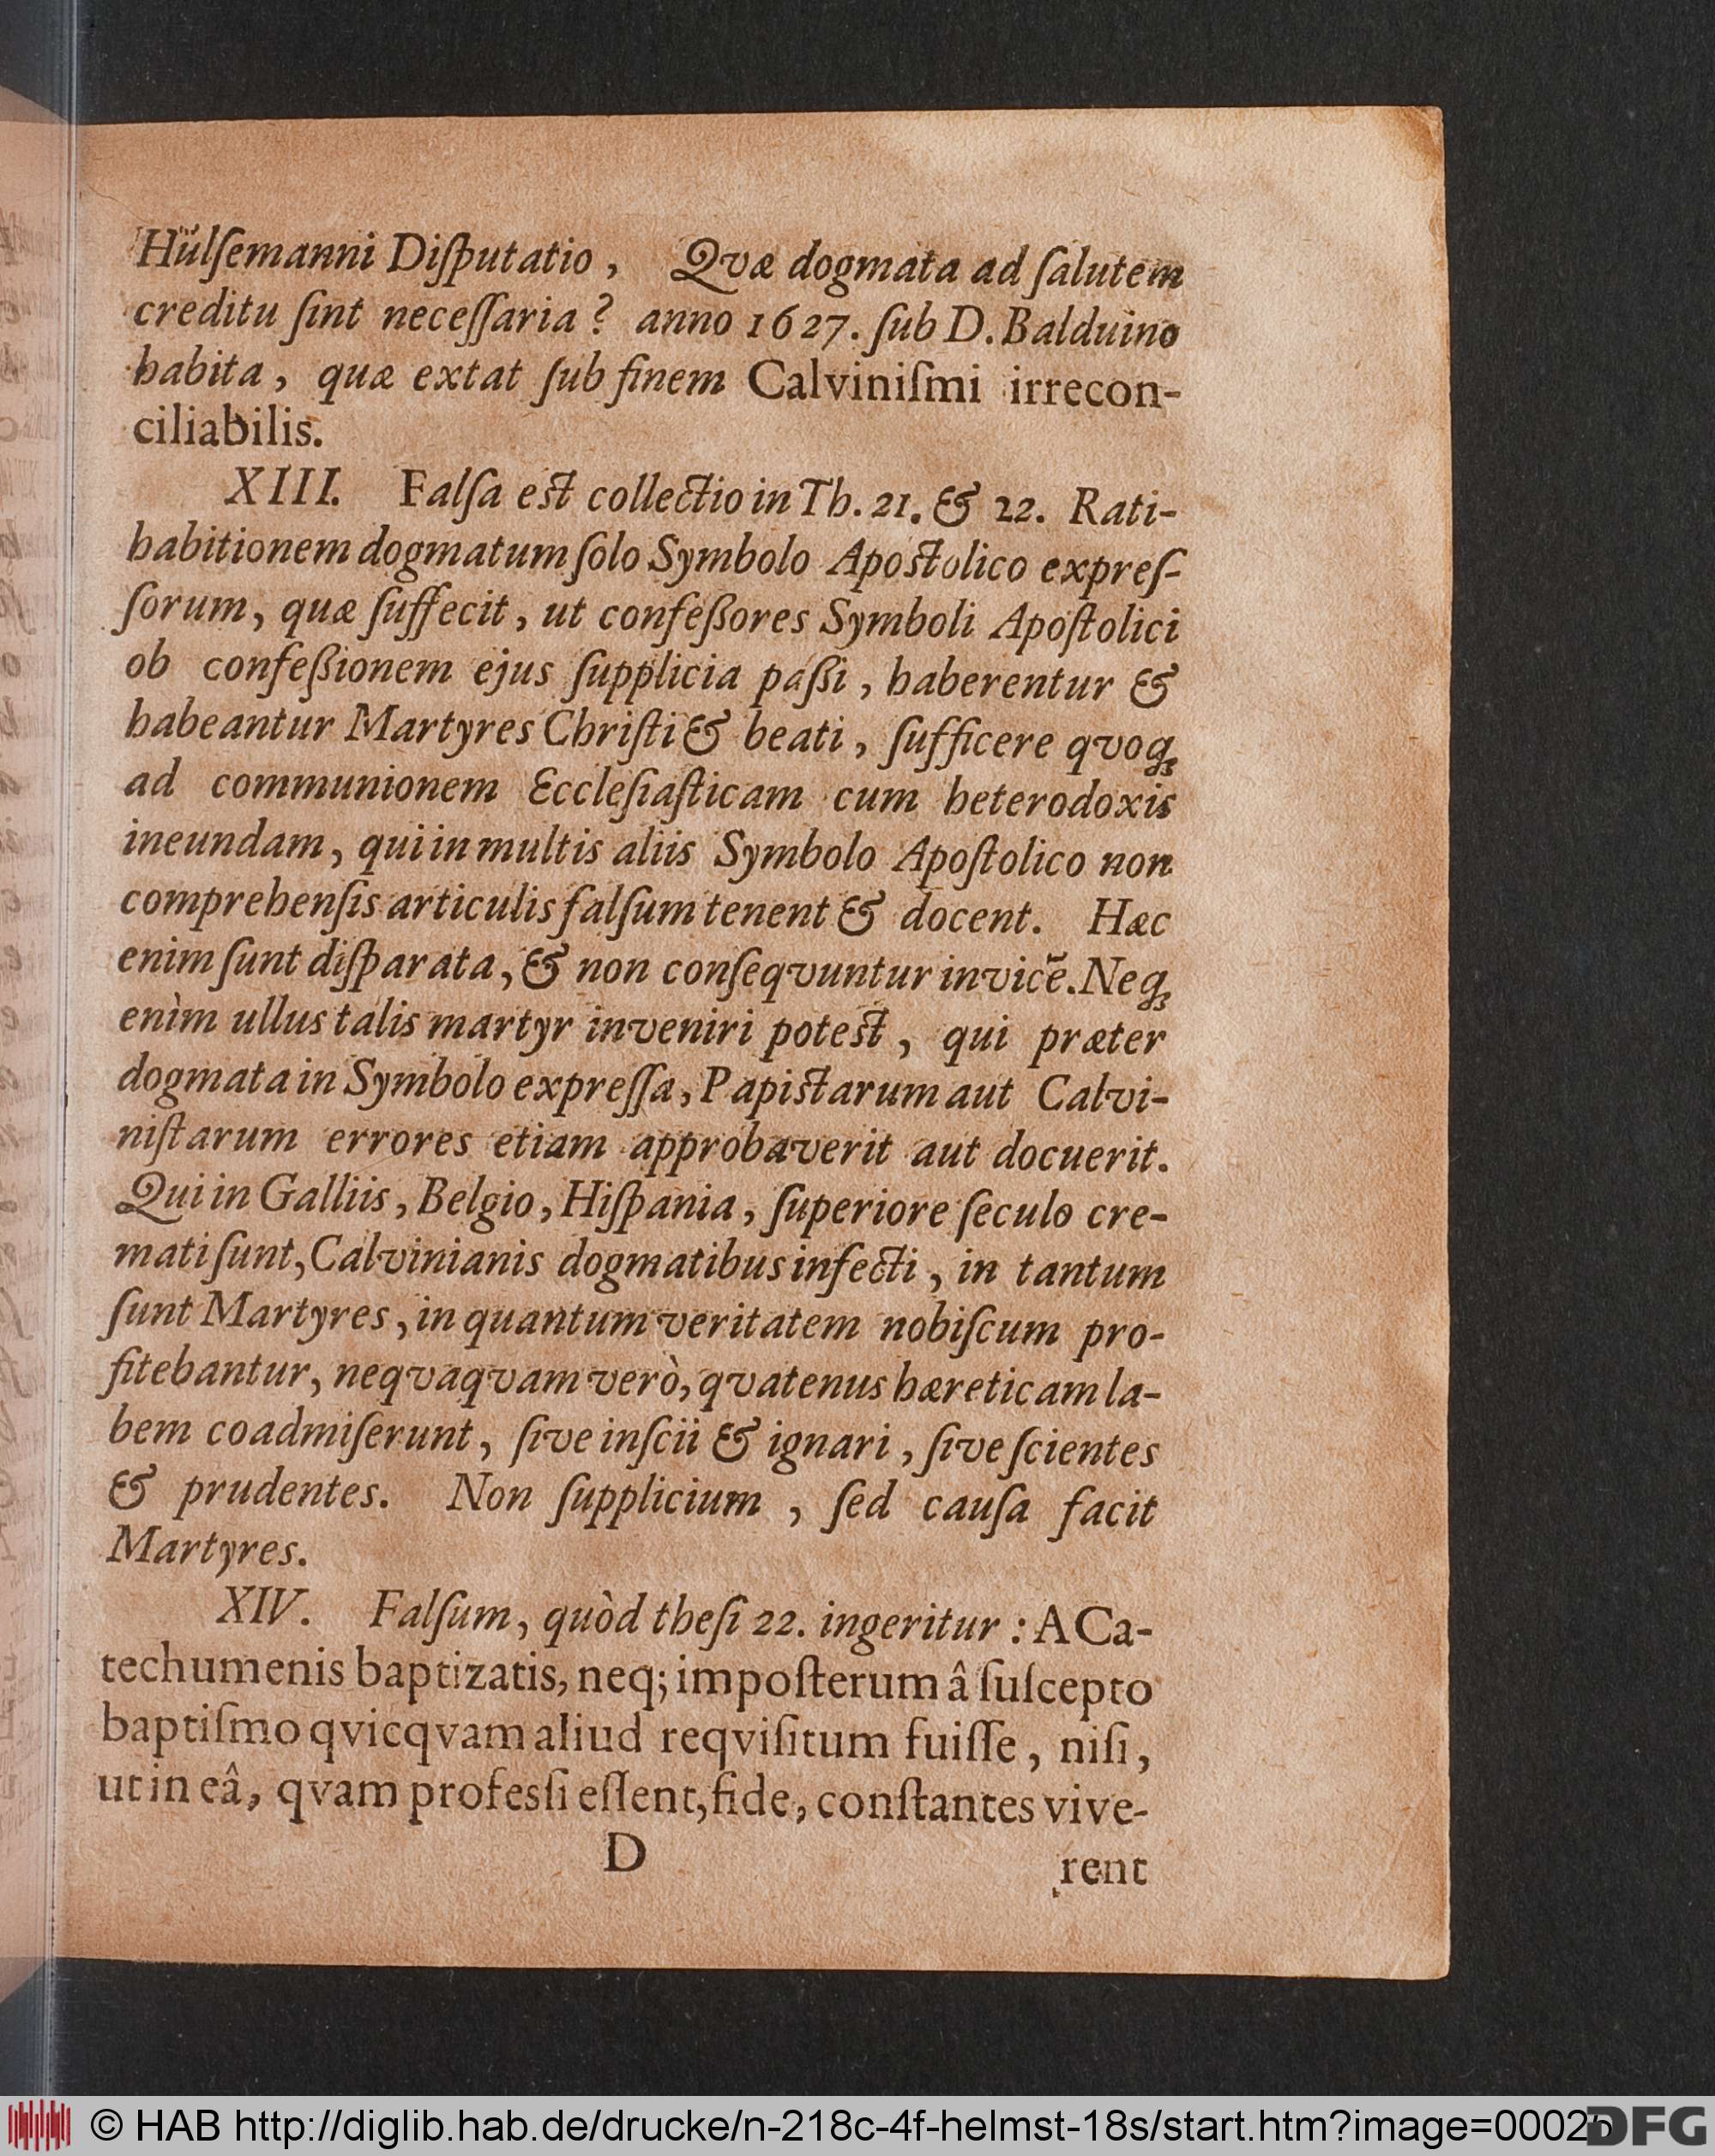 Hülſemanni Diſputatio, Qvæ dogmata ad ſalutem
creditu ſint neceſſaria? anno 1627. ſub D. Balduino
habita, quæ extat ſub finem Calviniſmi irrecon-
ciliabilis.
XIII. Falſa est collectio in Th. 21. & 22. Rati-
habitionem dogmatum ſolo Symbolo Apostolico expreſ-
ſorum, quæ ſuffecit, ut confeßores Symboli Apoſtolici
ob confeßionem ejus ſupplicia paßi, haberentur &
habeantur Martyres Chriſti & beati, ſufficere qvoq;
ad communionem Eccleſiaſticam cum heterodoxis
ineundam, qui in multis aliis Symbolo Apoſtolico non
comprehenſis articulis falſum tenent & docent. Hæc
enim ſunt diſparata, & non conſeqvuntur invicẽ. Neq;
enìm ullus talis martyr inveniri potest, qui præter
dogmata in Symbolo expreſſa, Papistarum aut Calvi-
niſtarum errores etiam approbaverit aut docuerit.
Qui in Galliis, Belgio, Hiſpania, ſuperiore ſeculo cre-
mati ſunt, Calvinianis dogmatibus infecti, in tantum
ſunt Martyres, in quantum veritatem nobiſcum pro-
fitebantur, neqvaqvam verò, qvatenus hæreticam la-
bem coadmiſerunt, ſive inſcii & ignari, ſive ſcientes
& prudentes. Non ſupplicium, ſed cauſa facit
Martyres.
XIV. Falſum, quòd theſi 22. ingeritur: A Ca-
techumenis baptizatis, neq; impoſterum â ſuſcepto
baptiſmo qvicqvam aliud reqviſitum fuiſſe, niſi,
ut in eâ, qvam profesſi eſſent, fide, conſtantes vive-
D
rent
© HAB http://diglib.hab.de/drucke/n-218c-4f-helmst-18s/start.htm?image=00025
DFG